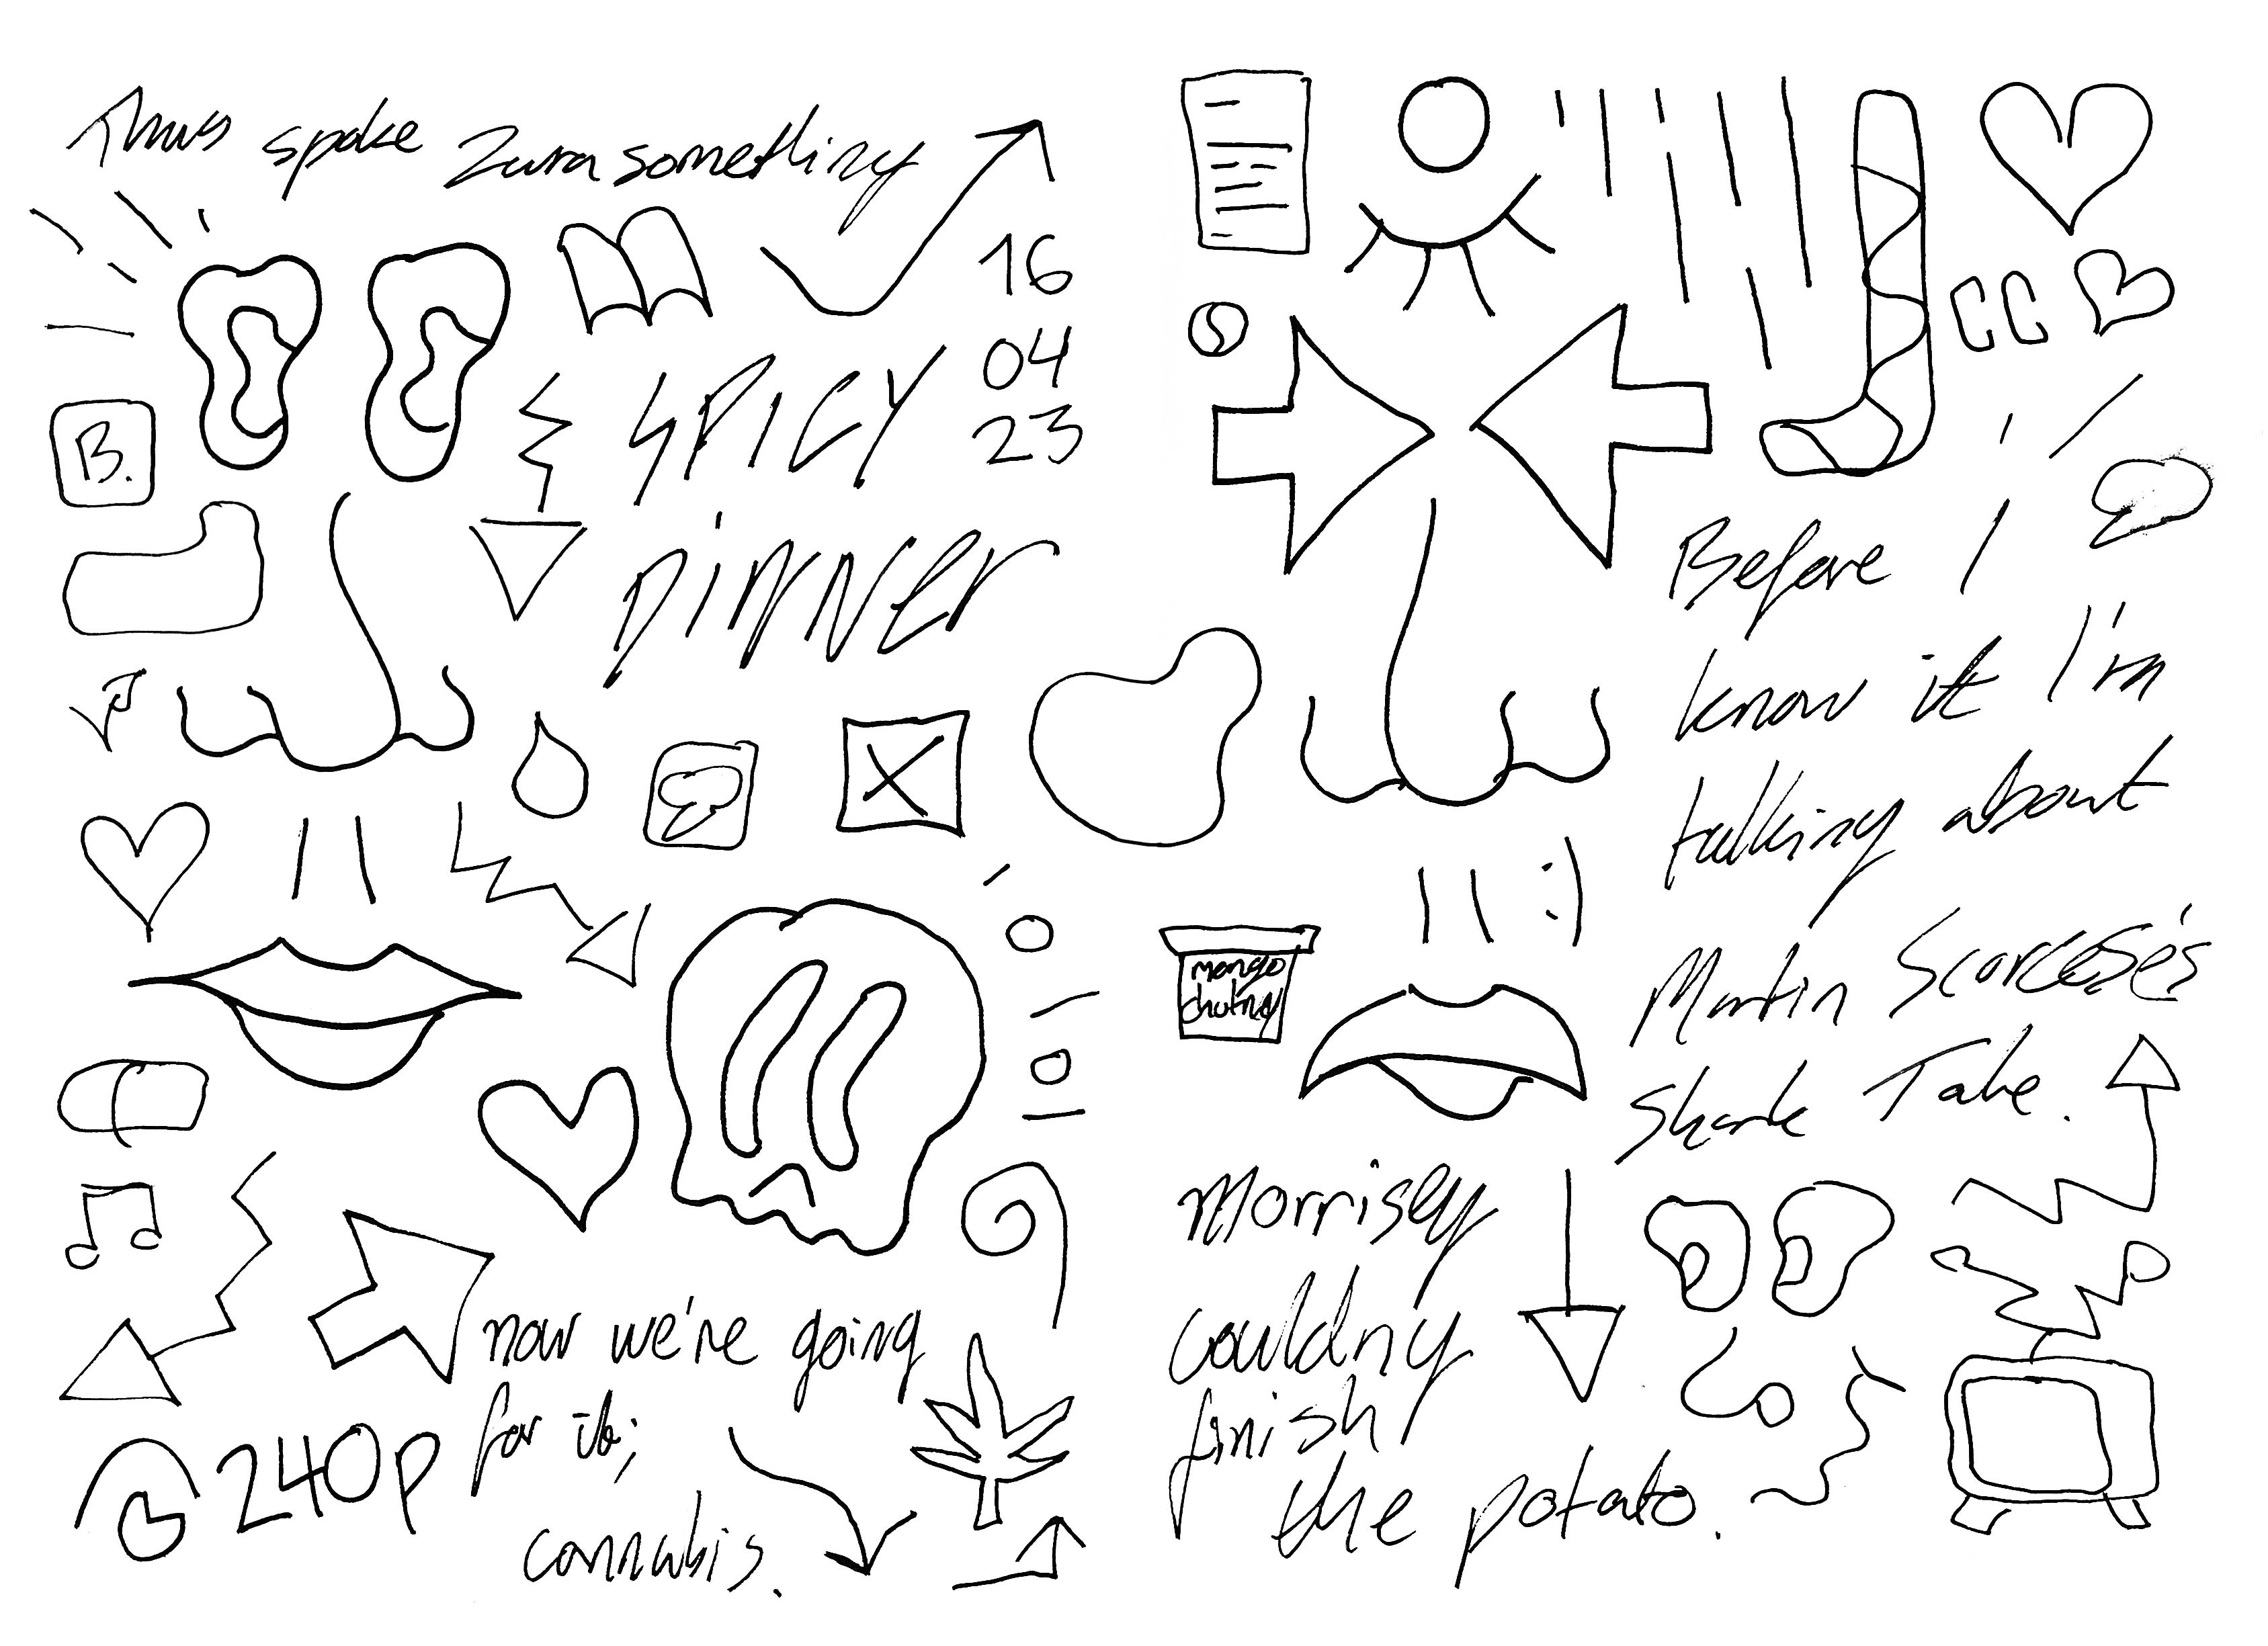 Thus spoke Zurasomething
16
04
23
B.
SPICY
DINNER
Before I
know it I'm
talking about
Martin Scorcese's
Shark Tale.
:)
mango
chutney
Morrisey
couldn'y
finish
the potato.
now we're going
for it;
cannabis.
240p